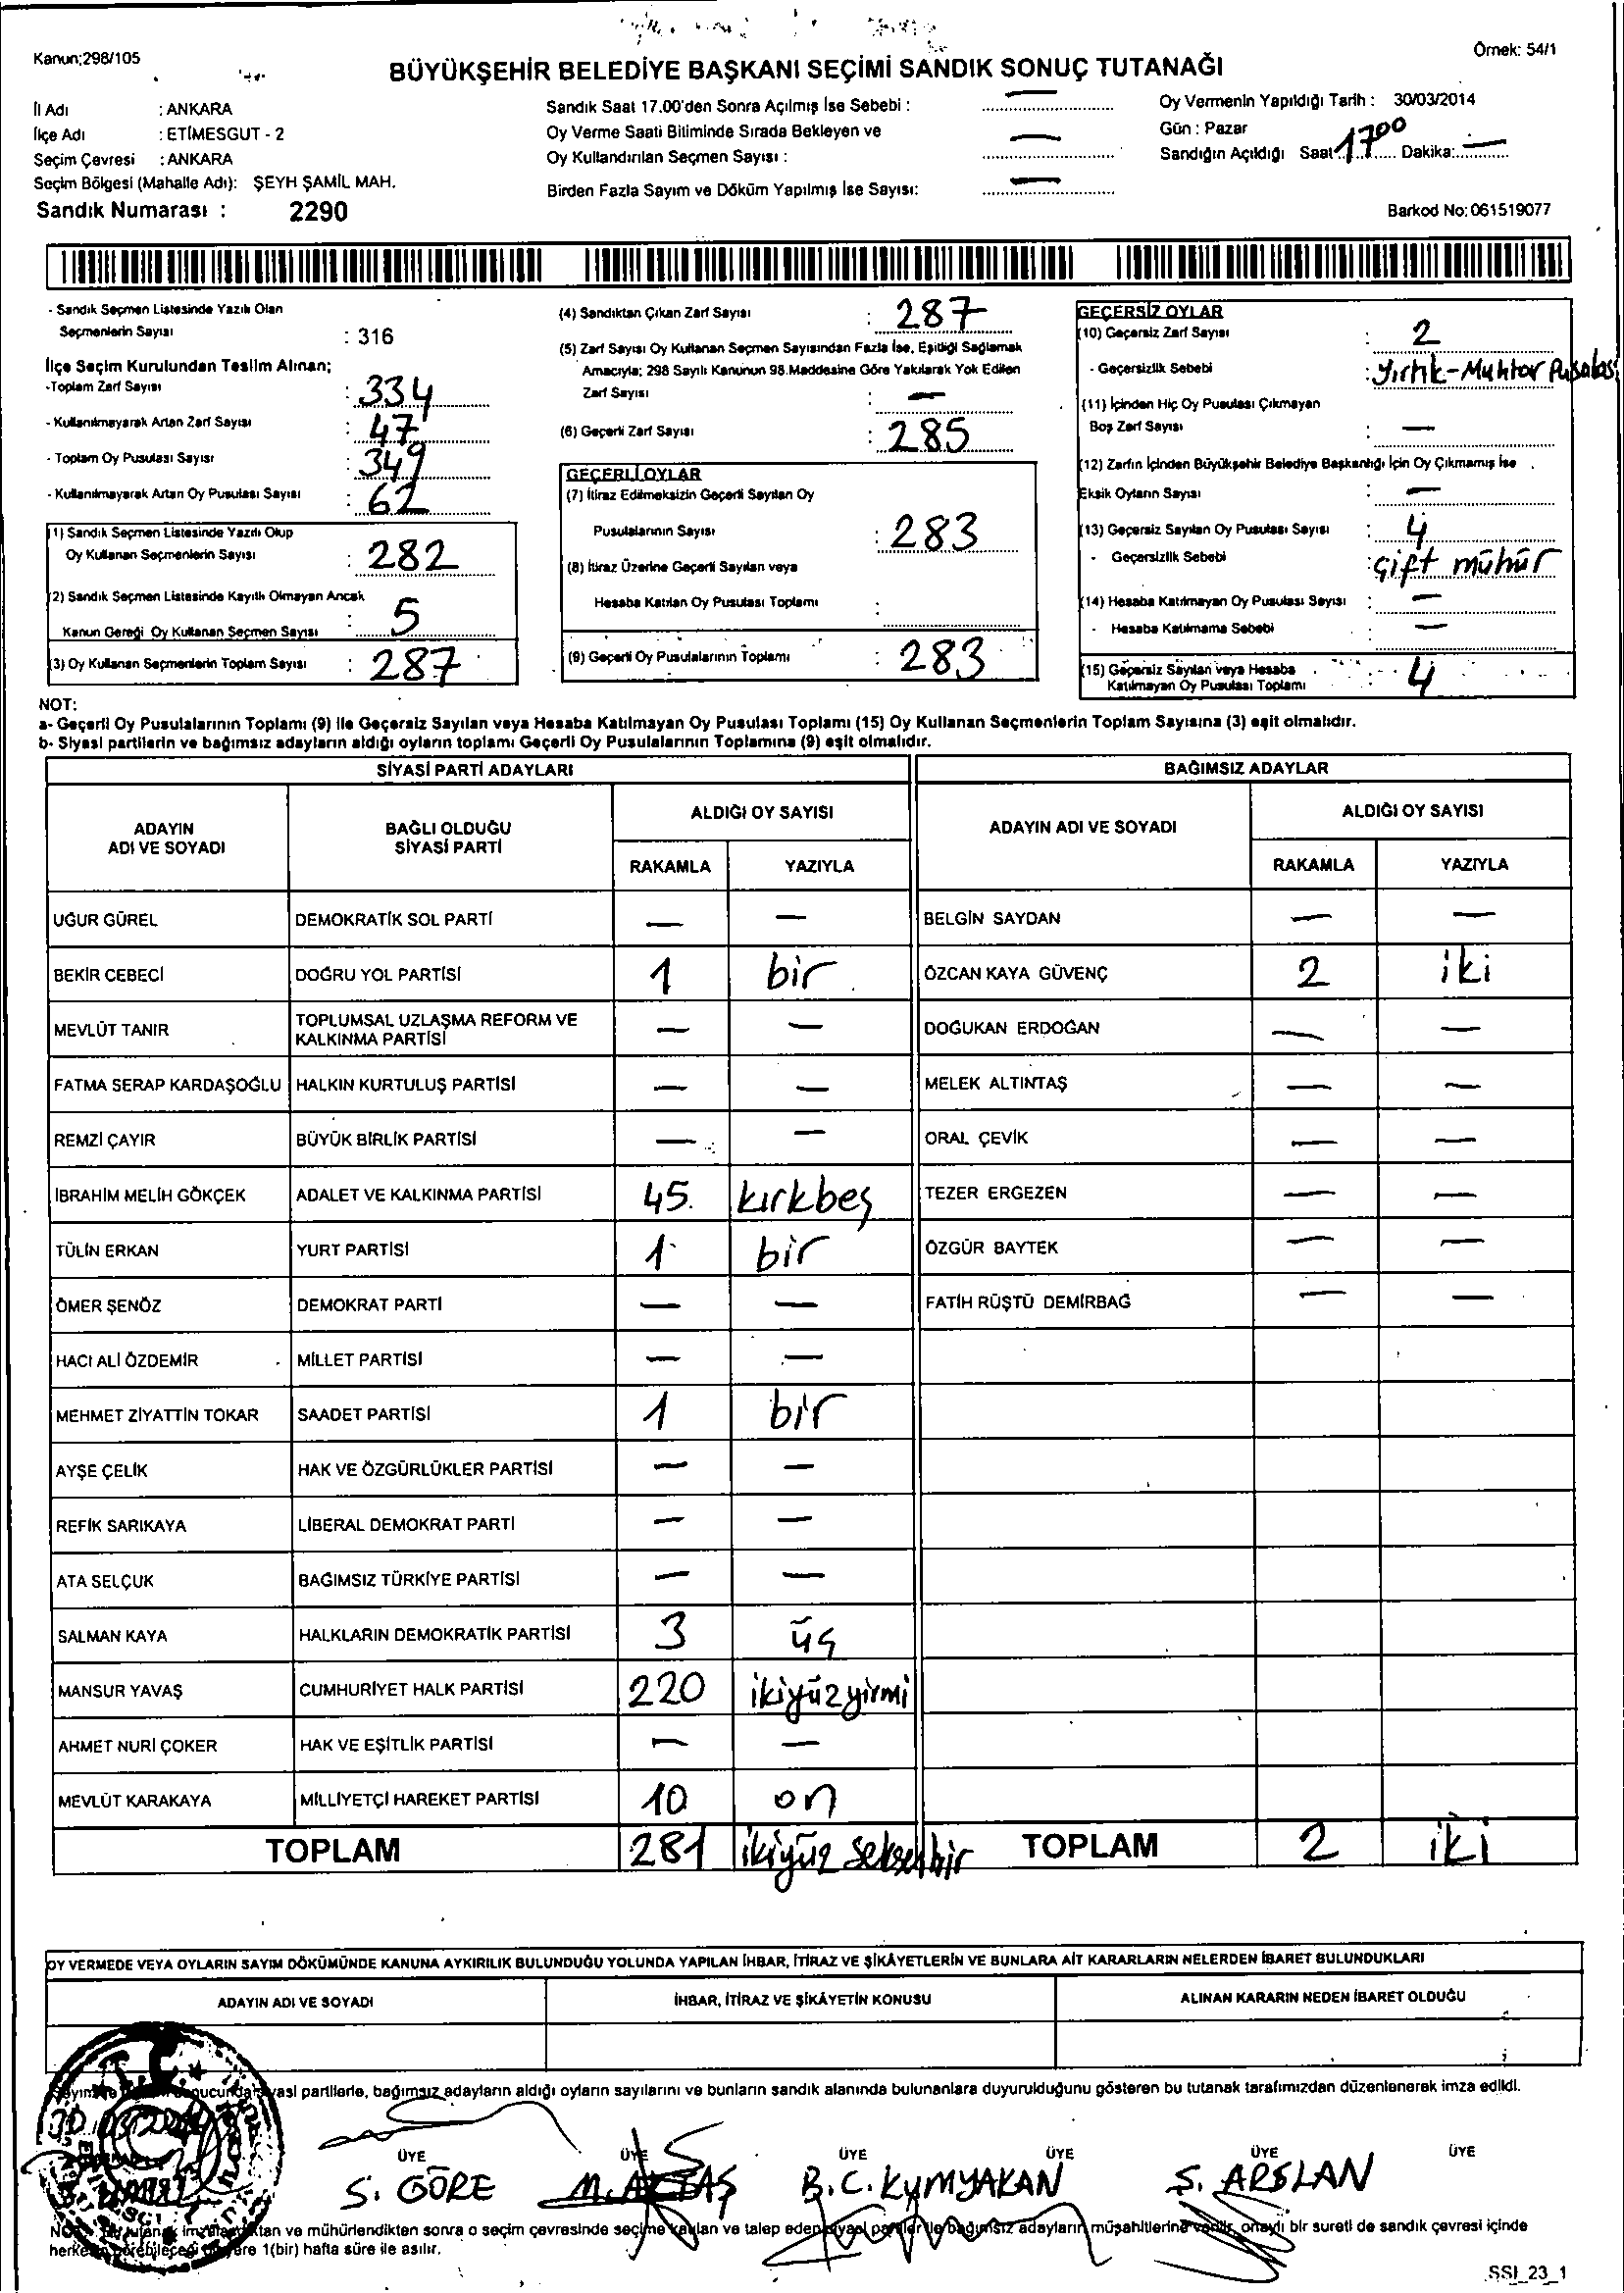 Kanun;298/105
Örnek: 54/1
BÜYÜKŞEHİR BELEDİYE BAŞKANI SEÇİMİ SANDIK SONUÇ TUTANAĞI
İl Adı : ANKARA
İlçe Adı : ETİMESGUT - 2
Seçim Çevresi : ANKARA
Seçim Bölgesi (Mahalle Adı): ŞEYH ŞAMİL MAH.
Sandık Numarası : 2290
Sandık Saat 17.00'den Sonra Açılmış İse Sebebi : —
Oy Verme Saati Bitiminde Sırada Bekleyen ve
Oy Kullandırılan Seçmen Sayısı : —
Birden Fazla Sayım ve Döküm Yapılmış İse Sayısı: —
Oy Vermenin Yapıldığı Tarih : 30/03/2014
Gün : Pazar
Sandığın Açıldığı Saat 1700 Dakika: —
Barkod No: 061519077
- Sandık Seçmen Listesinde Yazılı Olan
Seçmenlerin Sayısı : 316
İlçe Seçim Kurulundan Teslim Alınan;
-Toplam Zarf Sayısı : 334
- Kullanılmayarak Artan Zarf Sayısı : 47
- Toplam Oy Pusulası Sayısı : 349
- Kullanılmayarak Artan Oy Pusulası Sayısı : 62
(1) Sandık Seçmen Listesinde Yazılı Olup
Oy Kullanan Seçmenlerin Sayısı : 282
(2) Sandık Seçmen Listesinde Kayıtlı Olmayan Ancak
Kanun Gereği Oy Kullanan Seçmen Sayısı : 5
(3) Oy Kullanan Seçmenlerin Toplam Sayısı : 287
(4) Sandıktan Çıkan Zarf Sayısı : 287
(5) Zarf Sayısı Oy Kullanan Seçmen Sayısından Fazla İse, Eşitliği Sağlamak
Amacıyla; 298 Sayılı Kanunun 98.Maddesine Göre Yakılarak Yok Edilen
Zarf Sayısı : —
(6) Geçerli Zarf Sayısı : 285
GEÇERLİ OYLAR
(7) İtiraz Edilmeksizin Geçerli Sayılan Oy
Pusulalarının Sayısı : 283
(8) İtiraz Üzerine Geçerli Sayılan veya
Hesaba Katılan Oy Pusulası Toplamı :
(9) Geçerli Oy Pusulalarının Toplamı : 283
GEÇERSİZ OYLAR
(10) Geçersiz Zarf Sayısı : 2
- Geçersizlik Sebebi : Yırtık-Muhtar Pusulası
(11) İçinden Hiç Oy Pusulası Çıkmayan
Boş Zarf Sayısı : —
(12) Zarfın İçinden Büyükşehir Belediye Başkanlığı İçin Oy Çıkmamış İse
Eksik Oyların Sayısı : —
(13) Geçersiz Sayılan Oy Pusulası Sayısı : 4
- Geçersizlik Sebebi : Çift mühür
(14) Hesaba Katılmayan Oy Pusulası Sayısı : —
- Hesaba Katılmama Sebebi : —
(15) Geçersiz Sayılan veya Hesaba
Katılmayan Oy Pusulası Toplamı : 4
NOT:
a- Geçerli Oy Pusulalarının Toplamı (9) ile Geçersiz Sayılan veya Hesaba Katılmayan Oy Pusulası Toplamı (15) Oy Kullanan Seçmenlerin Toplam Sayısına (3) eşit olmalıdır.
b- Siyasi partilerin ve bağımsız adayların aldığı oyların toplamı Geçerli Oy Pusulalarının Toplamına (9) eşit olmalıdır.
SİYASİ PARTİ ADAYLARI
BAĞIMSIZ ADAYLAR
ADAYIN ADI VE SOYADI
BAĞLI OLDUĞU SİYASİ PARTİ
ALDIĞI OY SAYISI
RAKAMLA YAZIYLA
ADAYIN ADI VE SOYADI
ALDIĞI OY SAYISI
RAKAMLA YAZIYLA
UĞUR GÜREL DEMOKRATİK SOL PARTİ — — BELGİN SAYDAN — —
BEKİR CEBECİ DOĞRU YOL PARTİSİ 1 bir ÖZCAN KAYA GÜVENÇ 2 iki
MEVLÜT TANIR TOPLUMSAL UZLAŞMA REFORM VE KALKINMA PARTİSİ — — DOĞUKAN ERDOĞAN — —
FATMA SERAP KARDAŞOĞLU HALKIN KURTULUŞ PARTİSİ — — MELEK ALTINTAŞ — —
REMZİ ÇAYIR BÜYÜK BİRLİK PARTİSİ — — ORAL ÇEVİK — —
İBRAHİM MELİH GÖKÇEK ADALET VE KALKINMA PARTİSİ 45 kırkbeş TEZER ERGEZEN — —
TÜLİN ERKAN YURT PARTİSİ 1 bir ÖZGÜR BAYTEK — —
ÖMER ŞENÖZ DEMOKRAT PARTİ — — FATİH RÜŞTÜ DEMİRBAĞ — —
HACI ALİ ÖZDEMİR MİLLET PARTİSİ — —
MEHMET ZİYATTİN TOKAR SAADET PARTİSİ 1 bir
AYŞE ÇELİK HAK VE ÖZGÜRLÜKLER PARTİSİ — —
REFİK SARIKAYA LİBERAL DEMOKRAT PARTİ — —
ATA SELÇUK BAĞIMSIZ TÜRKİYE PARTİSİ — —
SALMAN KAYA HALKLARIN DEMOKRATİK PARTİSİ 3 üç
MANSUR YAVAŞ CUMHURİYET HALK PARTİSİ 220 ikiyüzyirmi
AHMET NURİ ÇOKER HAK VE EŞİTLİK PARTİSİ — —
MEVLÜT KARAKAYA MİLLİYETÇİ HAREKET PARTİSİ 10 on
TOPLAM 281 ikiyüz seksenbir TOPLAM 2 iki
OY VERMEDE VEYA OYLARIN SAYIM DÖKÜMÜNDE KANUNA AYKIRILIK BULUNDUĞU YOLUNDA YAPILAN İHBAR, İTİRAZ VE ŞİKÂYETLERİN VE BUNLARA AİT KARARLARIN NELERDEN İBARET BULUNDUKLARI
ADAYIN ADI VE SOYADI İHBAR, İTİRAZ VE ŞİKÂYETİN KONUSU ALINAN KARARIN NEDEN İBARET OLDUĞU
partilerle, bağımsız adayların aldığı oyların sayılarını ve bunların sandık alanında bulunanlara duyurulduğunu gösteren bu tutanak tarafımızdan düzenlenerek imza edildi.
ÜYE ÜYE ÜYE ÜYE ÜYE ÜYE
S. GÖRE M. AKTAŞ B.C. KUMYAKAN Ş. ARSLAN
ve mühürlendikten sonra o seçim çevresinde seçime katılan ve talep eden siyasi partiler ile bağımsız adayların müşahitlerine verilir, onaylı bir sureti de sandık çevresi içinde
1(bir) hafta süre ile asılır.
SSI_23_1